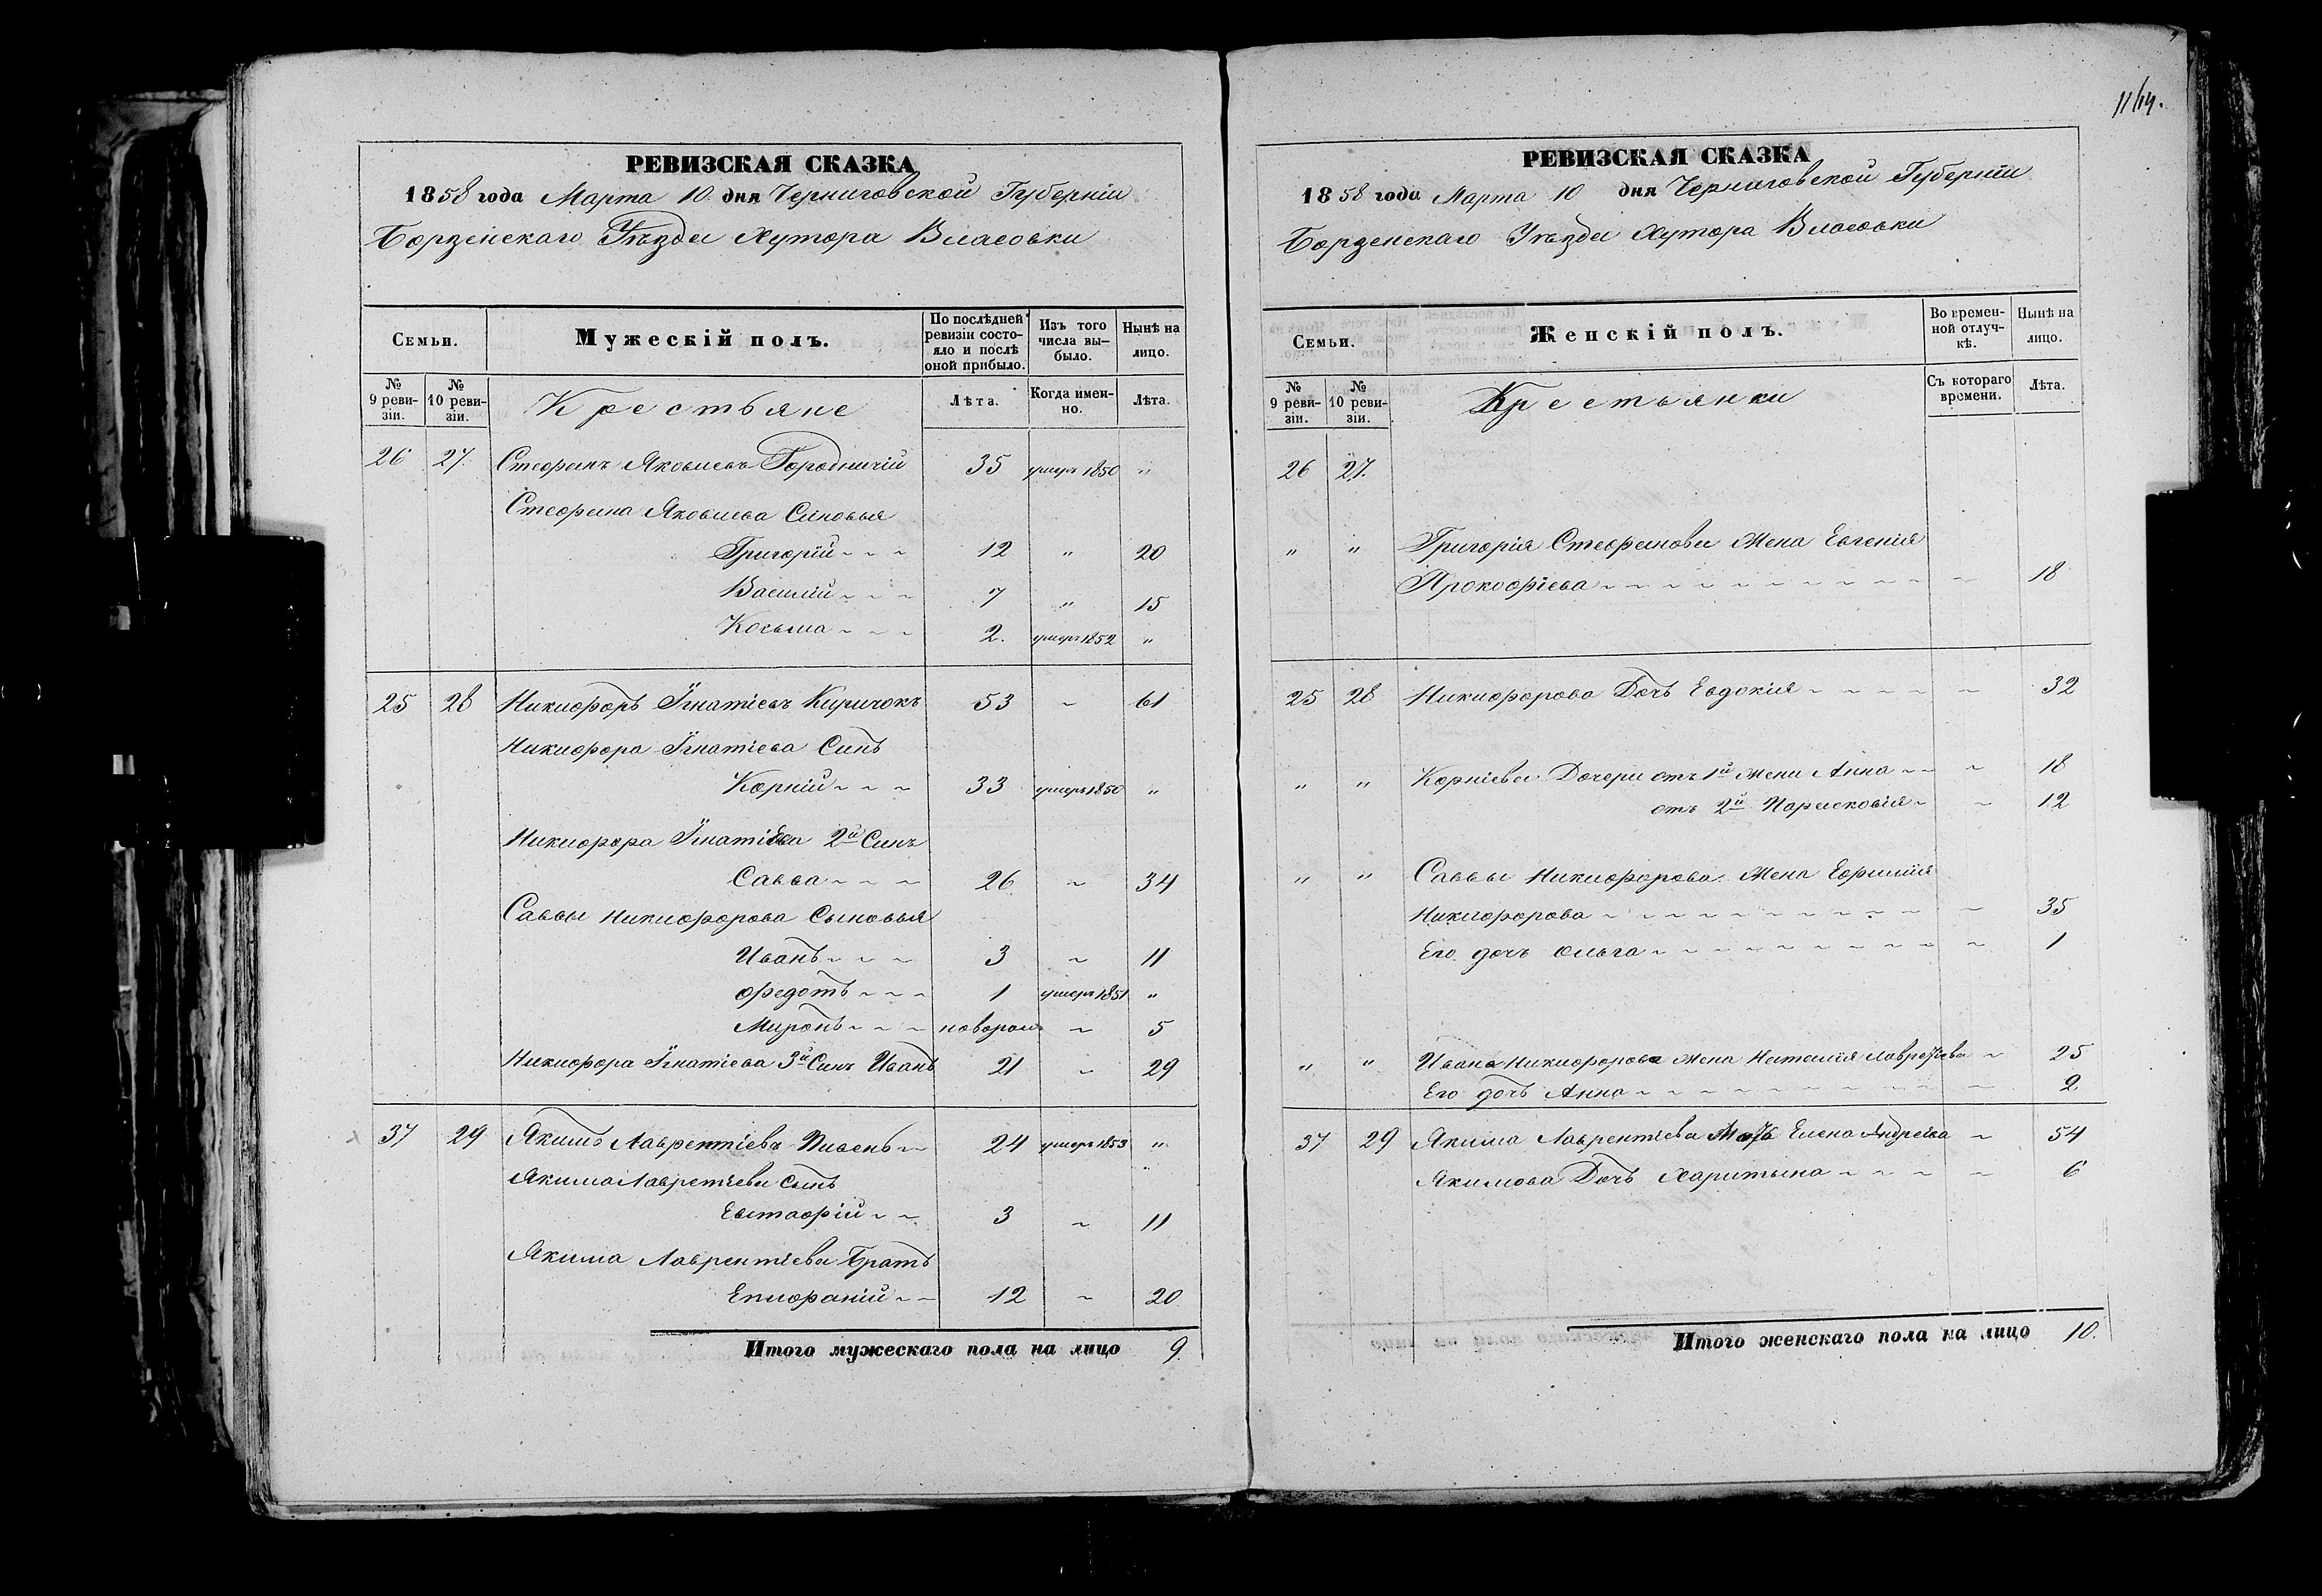 1164.
РЕВИЗСКАЯ СКАЗКА
1858 года Марта 10 дня Черниговской Губерніи
Борзенскаго Уѣзда Хутора Власовки
Семьи.
Мужескій полъ.
По послѣдней ревизіи состояло и послѣ оной прибыло.
Изъ того числа выбыло.
Нынѣ на лицо.
№ 9 ревизіи.
№ 10 ревизіи.
Крестьяне
Лѣта.
Когда именно.
Лѣта.
26 27. Стефанъ Яковлевъ Городничій 35 умеръ 1850 "
Стефана Яковлева Синовья
Григорій ~ ~ ~ 12 " 20
Василій ~ ~ ~ 7 " 15
Косьма ~ ~ ~ 2. умеръ 1852 "
25 28 Никифоръ Игнатіевъ Киричокъ 53 ~ 61
Никифора Игнатіева Синъ
Корній ~ ~ ~ 33 умеръ 1850 "
Никифора Игнатіева 2й Синъ
Савва ~ ~ ~ 26 ~ 34
Саввы Никифорова Сыновья
Иванъ ~ ~ ~ 3 ~ 11
Федотъ ~ ~ ~ 1 умеръ 1851 "
Миронъ ~ ~ ~ новорож ~ 5
Никифора Игнатіева 3й Синъ Иванъ 21 ~ 29
37 29 Якимъ Лаврентіевъ Пивень ~ 24 умеръ 1853 "
Якима Лавретіева Сынъ
Евстафій ~ ~ 3 ~ 11
Якима Лаврентіева Братъ
Епифаній ~ ~ 12 ~ 20
Итого мужескаго пола на лицо 9.
РЕВИЗСКАЯ СКАЗКА
1858 года Марта 10 дня Черниговской Губерніи
Борзенскаго Уѣзда Хутора Власовки
Семьи.
Женскій полъ.
Во временной отлучкѣ.
Нынѣ на лицо.
№ 9 ревизіи.
№ 10 ревизіи.
Крестьянки
Съ котораго времени.
Лѣта.
26 27.
" " Григорія Стефанова Жена Евгенія
Прокофіева ~ ~ ~ 18
25 28 Никифорова Дочь Евдокія ~ ~ ~ 32
" " Корніева Дочери отъ 1й жени Анна ~ ~ ~ 18
отъ 2й Парасковія ~ ~ 12
" " Саввы Никифорова Жена Ефимія
Никифорова ~ ~ ~ 35
Его дочь Ольга ~ ~ ~ 1
" " Ивана Никифорова жена Наталія Лавретіева ~ 25
Его дочь Анна ~ ~ ~ 2
37 29 Якима Лаврентіева Мать Елена Андреева ~ 54
Якимова Дочь Харитына ~ ~ ~ 6
Итого женскаго пола на лицо 10.